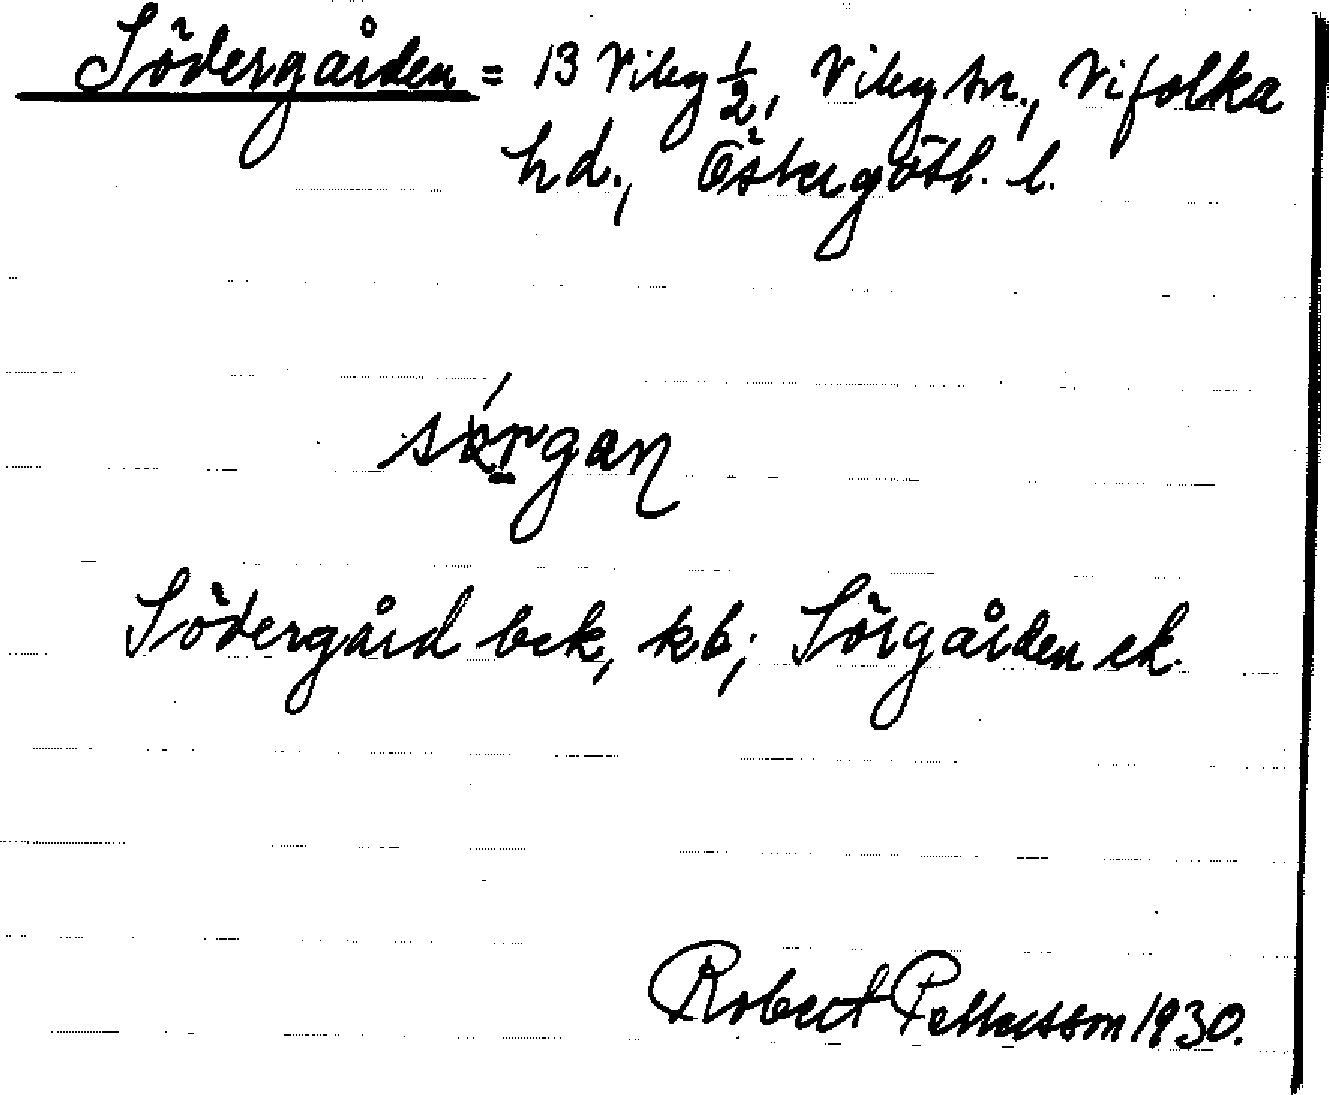 Södergården = 13 Viby 1/2, Viby sn., Vifolka
hd., Östergötl. l.
Södergård bek, kb; Sörgården ek.
Robert Pettersson 1930.